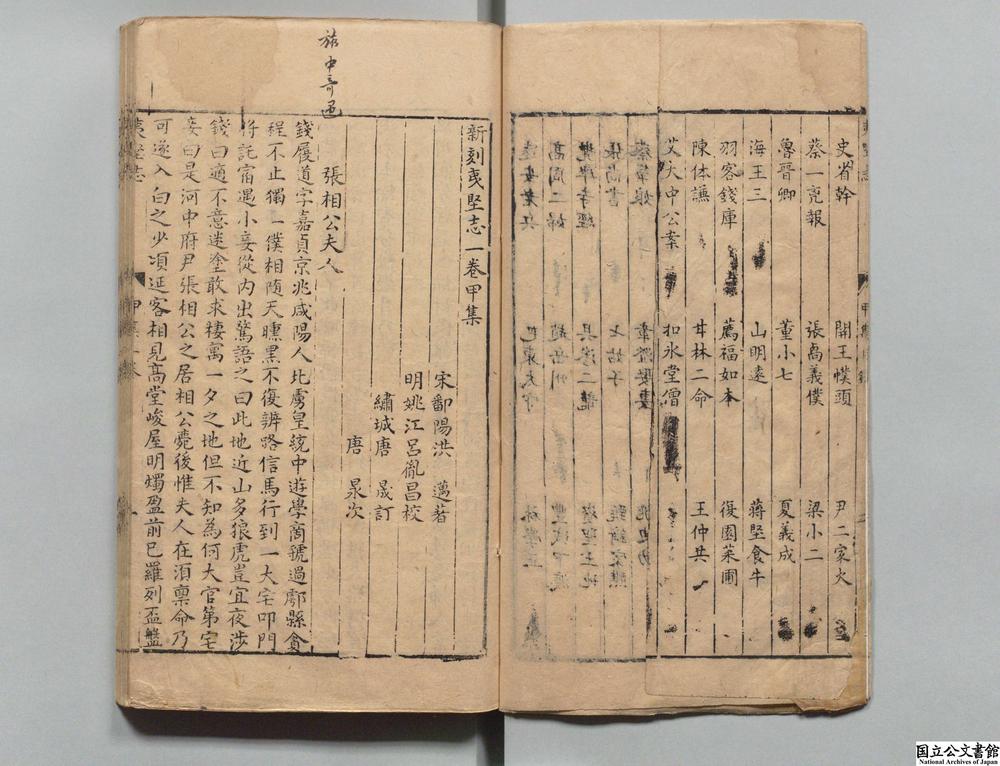 史省幹　開王幞頭　尹二家火
蔡一亮報　張喬義僕　梁小二
魯晉卿　董小七　夏義成
海王三　山明遠　蔣堅食牛
羽客錢庫　薦福如本　復園菜圃
陳体謙　甘林二命　王仲共
艾大中公案　扣氷堂僧
旅中奇遇
新刻夷堅志一卷甲集
宋鄱陽洪　邁著
明姚江呂胤昌校
繡城唐　晟訂
唐　㫤次
張相公夫人
錢履道字嘉貞京兆咸陽人北虜皇統中遊學商虢過鄠縣貪
程不止獨一僕相随天曛黒不復辨路信馬行到一大宅叩門
将託宿遇小妾從内出驚語之曰此地近山多狼虎豈宜夜涉
錢曰適不意迷塗敢求棲寓一夕之地但不知為何大官第宅
妾曰是河中府尹張相公之居相公薨後惟夫人在湏禀命乃
可遂入白之少項延客相見高堂峻屋明燭盈前已羅列盃盤
国立公文書館
National Archives of Japan